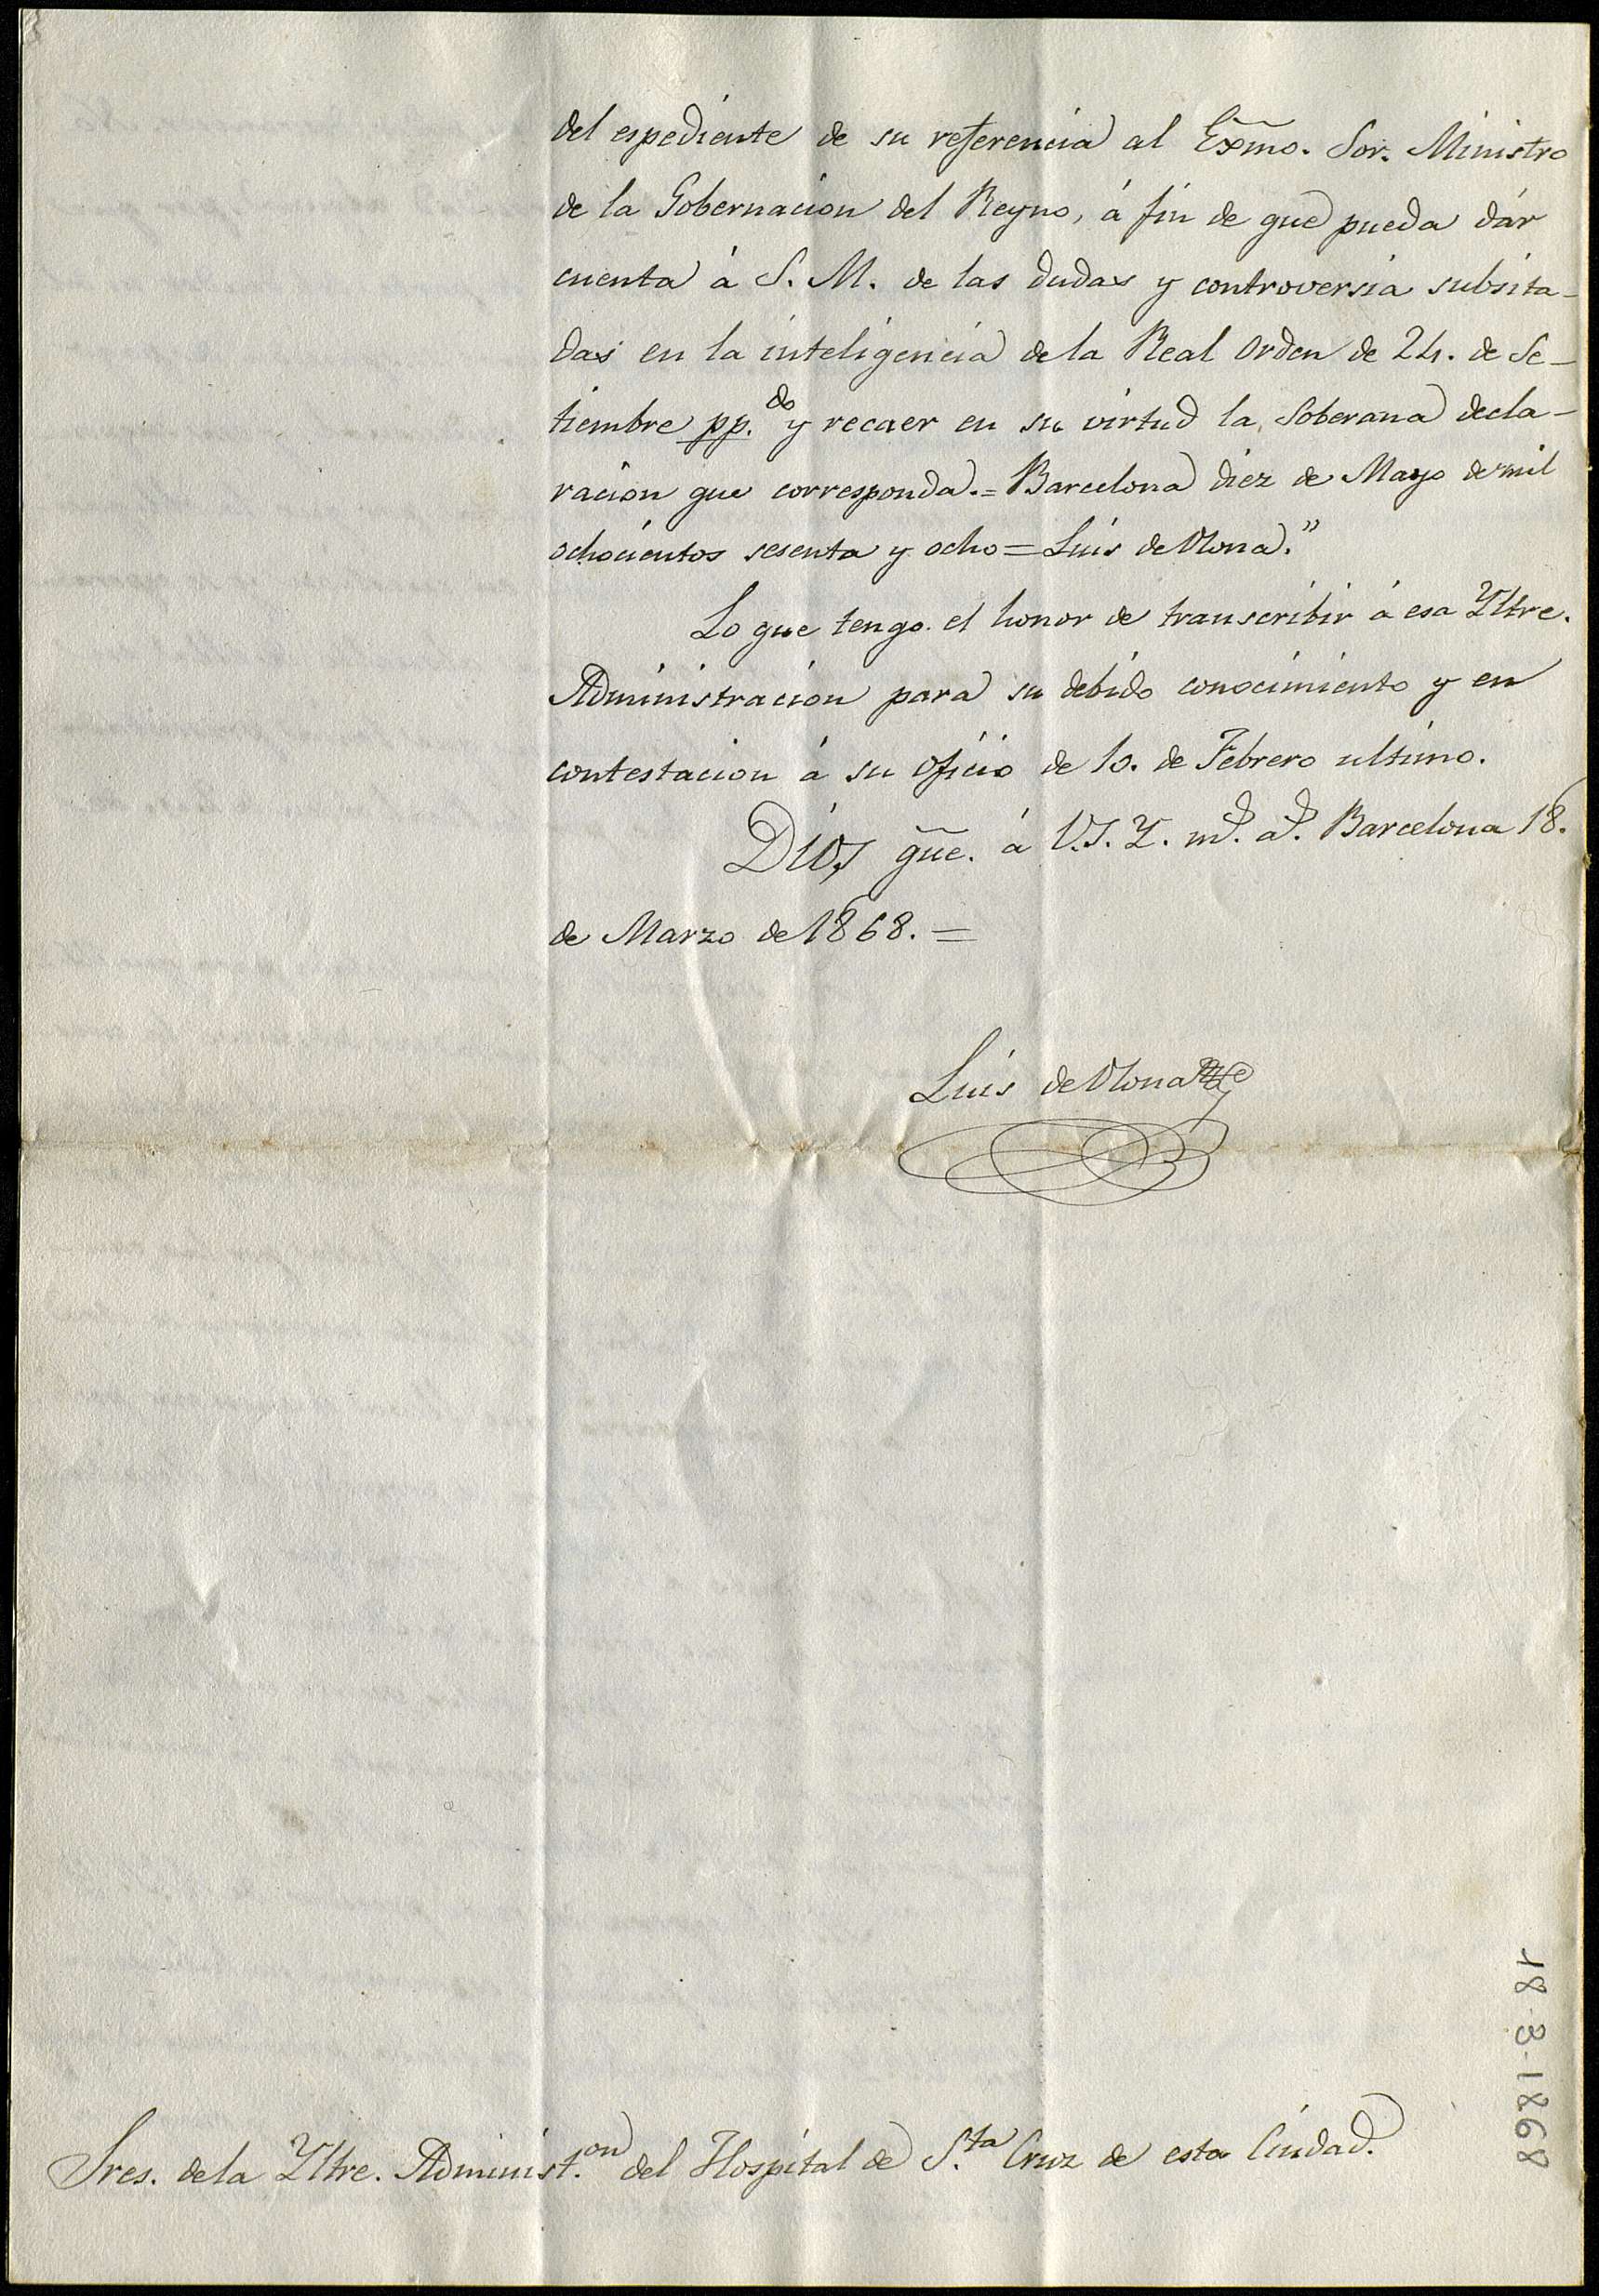 del espediente de su referencia al Exm̃o. Sor. Ministro
de la Gobernacion del Reyno, á fin de que pueda dár
cuenta á S. M. de las dudas y controversia subsita-
das en la inteligencia de la Real Orden de 24. de Se-
tiembre pp.do y recaer en su virtud la Soberana decla-
racion que corresponda.= Barcelona diez de Mayo de mil
ochocientos sesenta y ocho = Luis de Olona."
Lo que tengo el honor de transcribir á esa Yltre.
Administracion para su debido conocimiento y en
contestacion á su oficio de 10. de Febrero ultimo.
Dios gũe. á V.S.Y. md. ad. Barcelona 18.
de Marzo de 1868. =
Luis de Olona
Sres. de la Yltre. Administ.on del Hospital de S.ta Cruz de esta Ciudad.
18-3-1868